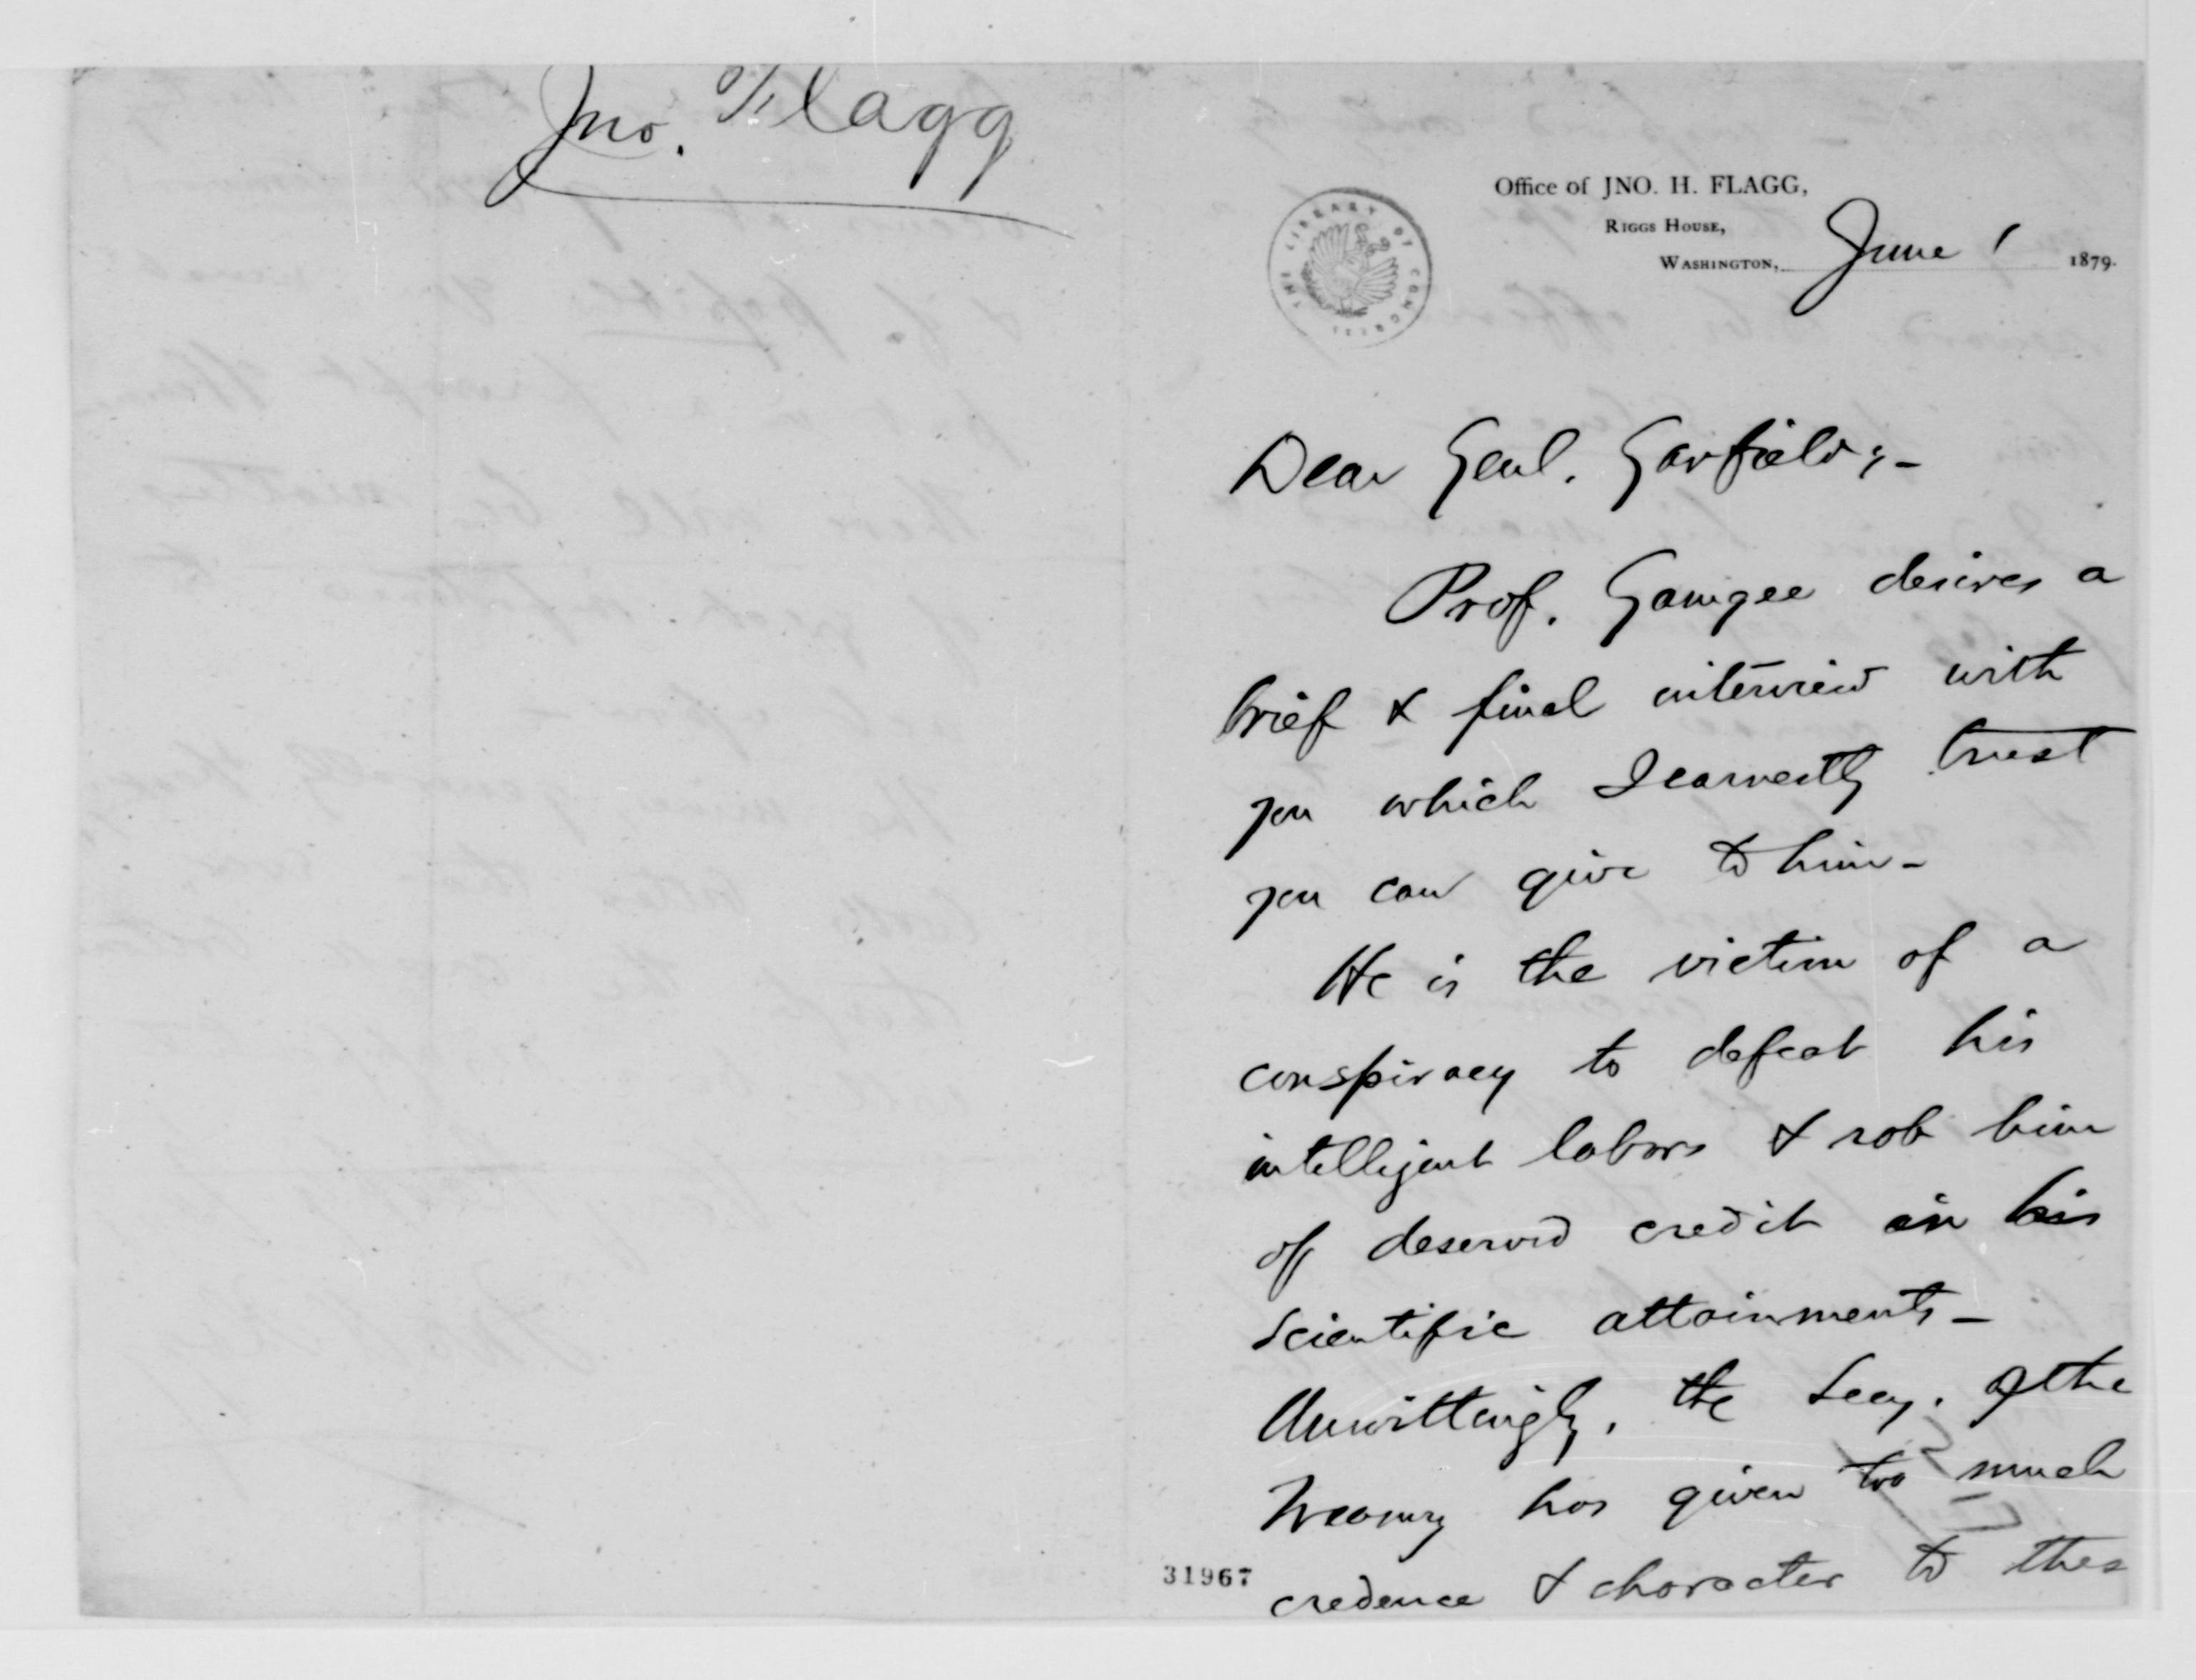 Jno. Flagg
Office of JNO. H. FLAGG,
RIGGS HOUSE,
WASHINGTON, June 1 1879.
THE LIBRARY OF CONGRESS
Dear Genl. Garfield;-
Prof. Gamgee desires a
brief & final interview with
you which I earnestly trust
you can give to him-
He is the victim of a
conspiracy to defeat his
intelligent labors & rob him
of deserved credit in his
scientific attainments-
Unwittingly, the Secy. of the
Treasury has given too much
credence & character to thes
31967